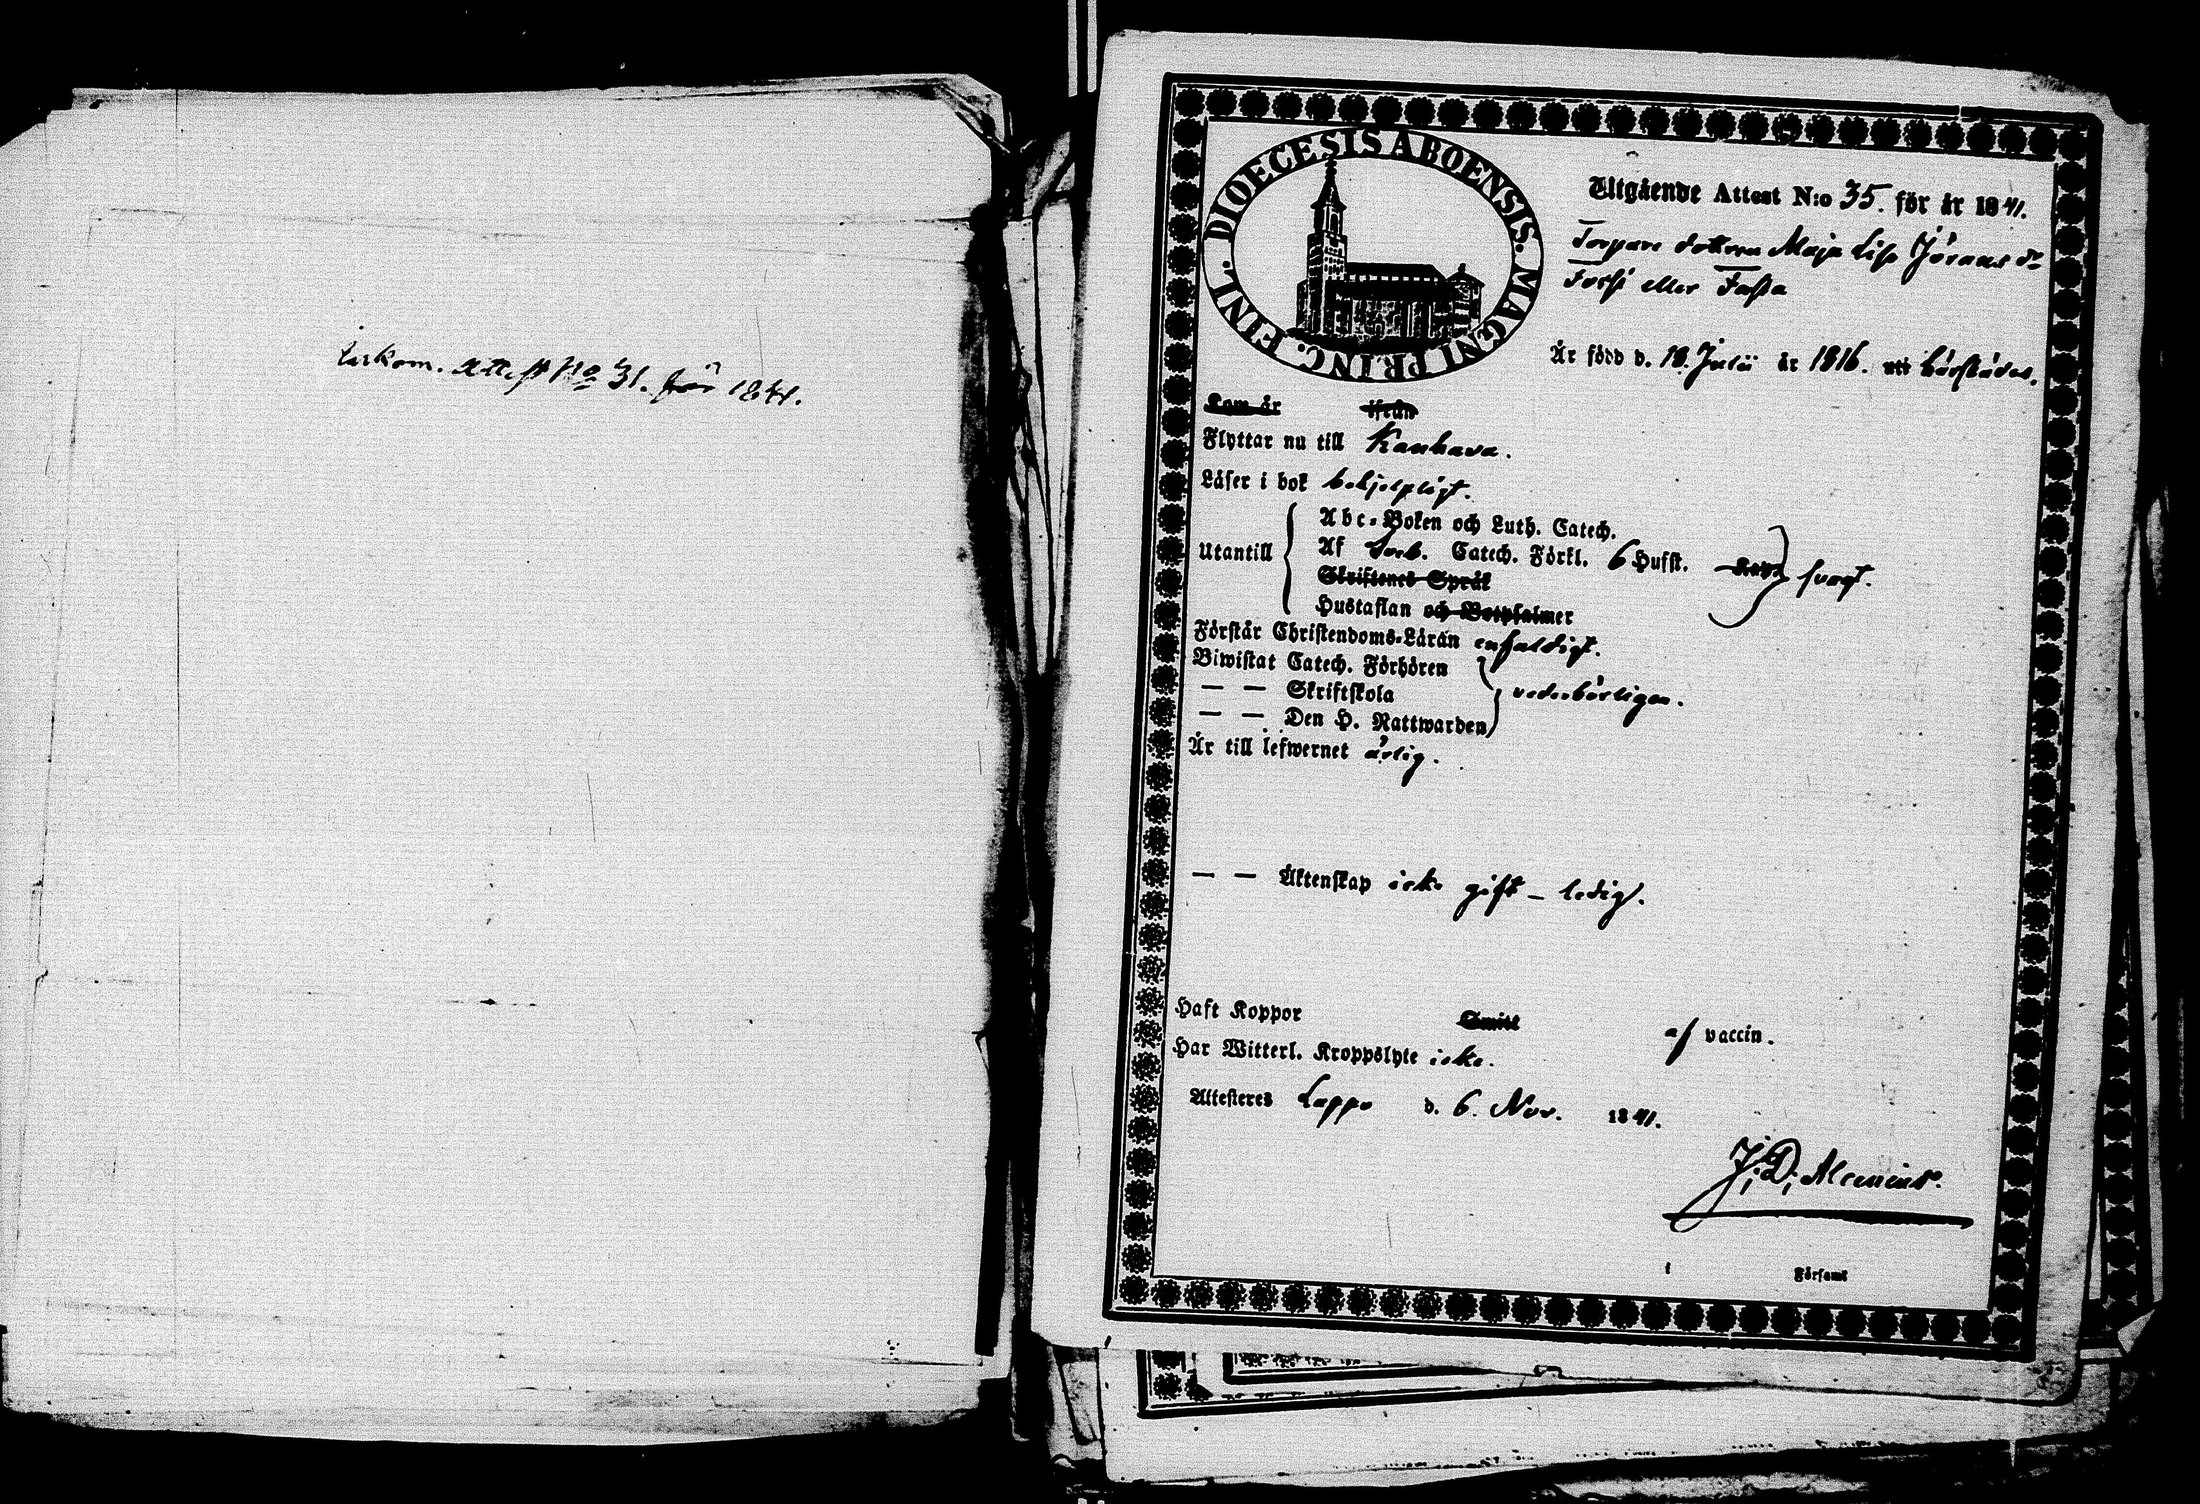 Inkom. Attest No 31. för 1841.
DIOECESIS ABOENSIS. MAGNI PRINC. FINL.
Utgående Attest N:o 35. för år 1841.
Torpare dottren Maja Lisa Jörans dr
Forsi eller Fasta
Är född d. 18. Julii år 1816. uti härstädes.
Kom år ifrån
Flyttar nu till Kauhava.
Läser i bok behjelpligt.
Utantill
Abc-Boken och Luth. Catech.
Af Sveb. Catech. Förkl. 6 Hufst.
Skriftenes Språk
Hustaflan och Botpsalmer
svagt.
Förstår Christendoms-Läran enfaldigt.
Biwistat Catech. Förhören
— — Skriftskola
vederbörligen.
— — Den H. Nattwarden
Är till lefwernet ärlig.
— — Äktenskap icke gift – ledig.
Haft Koppor Smitt af vaccin.
Har Witterl. Kroppslyte icke.
Attesteres Lappo d. 6. Nov. 1841.
J. D. Alcenius.
i Församl